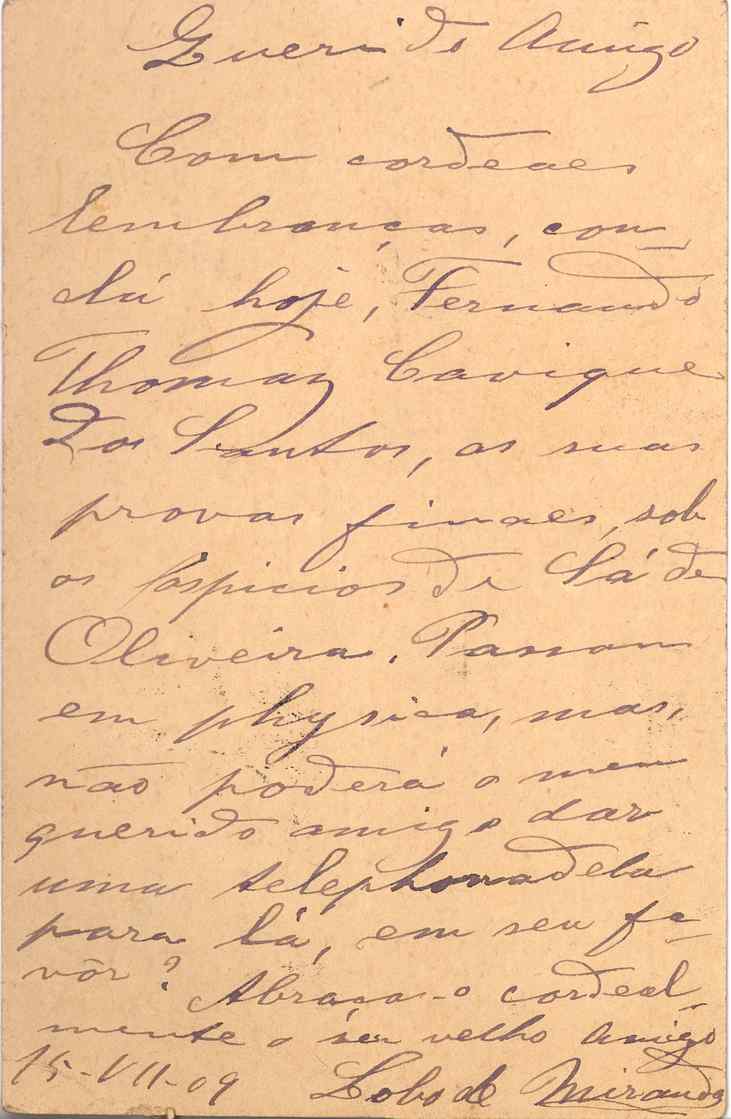 Querido Amigo
Com cordeaes
lembranças, con-
clúi hoje, Fernando
Thomaz Cavique
Dos Santos, as suas
provas finaes, sob
os auspicios de Sá de
Oliveira. Passou
em physica, mas,
não poderá o meu
querido amigo dar
uma telephonadela
para lá, em seu fa-
vôr? Abraça-o cordeal-
mente o seu velho Amigo
15-VII-09 Lobo de Miranda